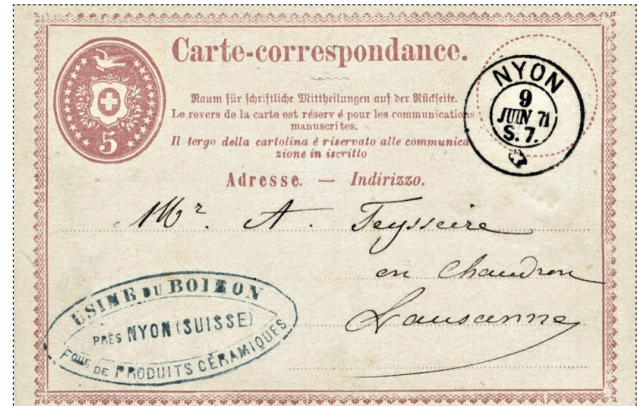 Carte-correspondance.
5
Raum für schriftliche Mittheilungen auf der Rückseite.
Le revers de la carte est réservé pour les communications
manuscrites.
Il tergo della cartolina è riservato alle communica
zione in iscritto
NYON
9
JUIN 71
S. 7.
Adresse. — Indirizzo.
Mr. A. Teysseire
en Chaudron
Lausanne
USINE DU BOIRON
PRÈS NYON (SUISSE)
FQUE DE PRODUITS CÉRAMIQUES